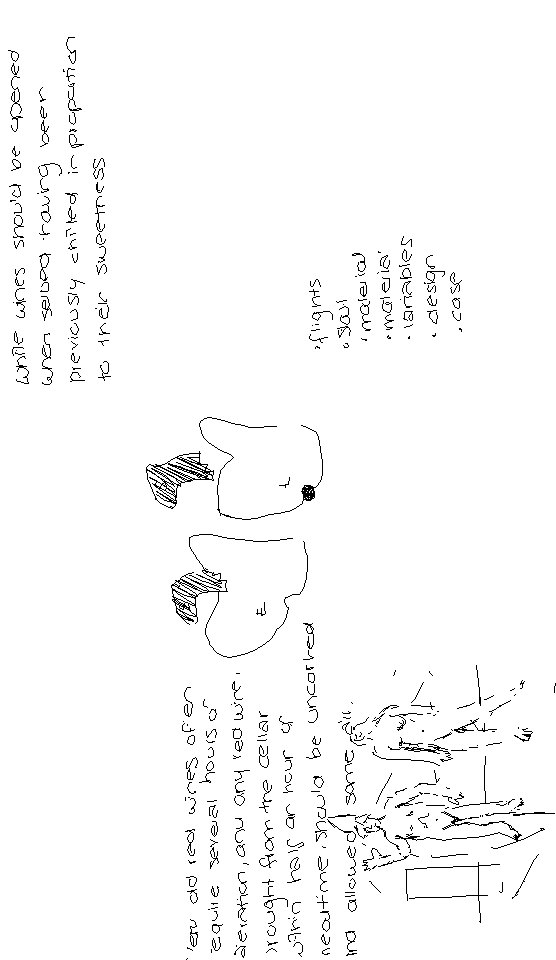 white wines should be opened
when served having been
previously chilled in proportion
to their sweetness
•flights
•stail
•material
•material
•variables
•design
•case
L
E
very old red wines often
require several hours of
aeration, and any red wine,
brought from the cellar
within half an hour of
mealtime, should be uncorked
and allowed some air.